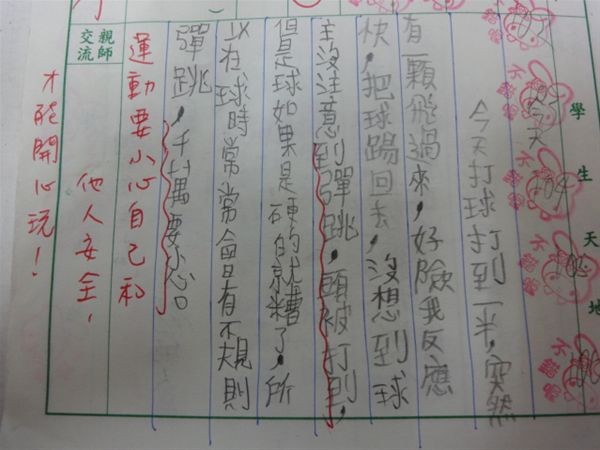 學生天地
今天打球打到一半,突然
有一顆飛過來,好險我反應
快,把球踢回去,沒想到球
主沒注意到彈跳,頭被打到,
但是球如果是硬的就糟了,所
以在球時常常會有不規則
彈跳,千萬要小心。
親師
交流
運動要小心自己和
他人安全,
才能開心玩!